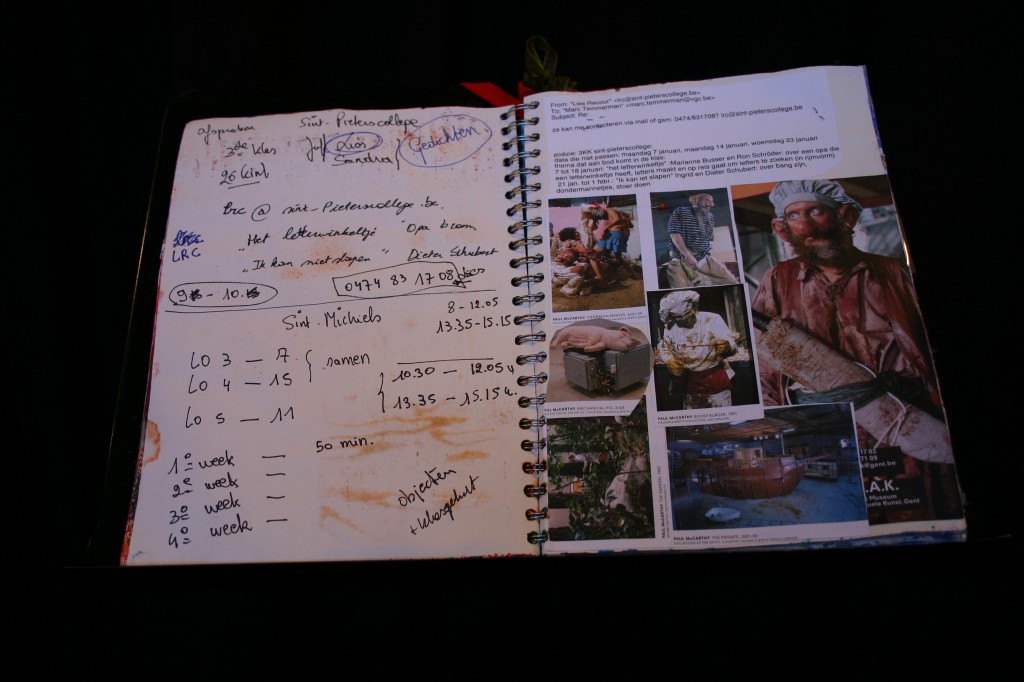 afspraken Sint. Pieterscollege
3de klas juf Lies Gedichten.
Sandra
26 kind
lrc @ sint-Pieterscollege.be.
"Het letterwinkeltje" Opa boom
LRC
"Ik kan niet slapen" Dieter Schubert
0474 83 17 08
Sint. Michiels 8 - 12.05
13.35 - 15.15
LO 3 — 7 samen
LO 4 — 15 10.30 — 12.05 u
LO 5 — 11 13.35 - 15.15 u.
50 min.
1e week —
2e week —
3e week —
4e week —
objecten
From: "Lies Recour" <lrc@sint-pieterscollege.be>
To: "Marc Temmerman" <marc.temmerman@vgc.be>
Subject: Re:
ze kan me contacteren via mail of gsm: 0474/8317087 lrc@sint-pieterscollege.be
poëzie: 3KK sint-pieterscollege:
data die niet passen: maandag 7 januari, maandag 14 januari, woensdag 23 januari
thema dat aan bod komt in de klas:
7 tot 18 januari: "het letterwinkeltje" Marianne Busser en Ron Schröder: over een opa die
een letterwinkeltje heeft, letters maakt en op reis gaat om letters te zoeken (in rijmvorm)
21 jan. tot 1 febr.: "Ik kan iet slapen" Ingrid en Dieter Schubert: over bang zijn,
dondermannetjes, stoer doen
PAUL McCARTHY
PAUL McCARTHY MECHANICAL PIG, 
PAUL McCARTHY
PAUL McCARTHY THE GARDEN,
PAUL McCARTHY THE FRIGATE,
17 03
71 09
a@gent.be
.A.K.
Museum
uele Kunst, Gent